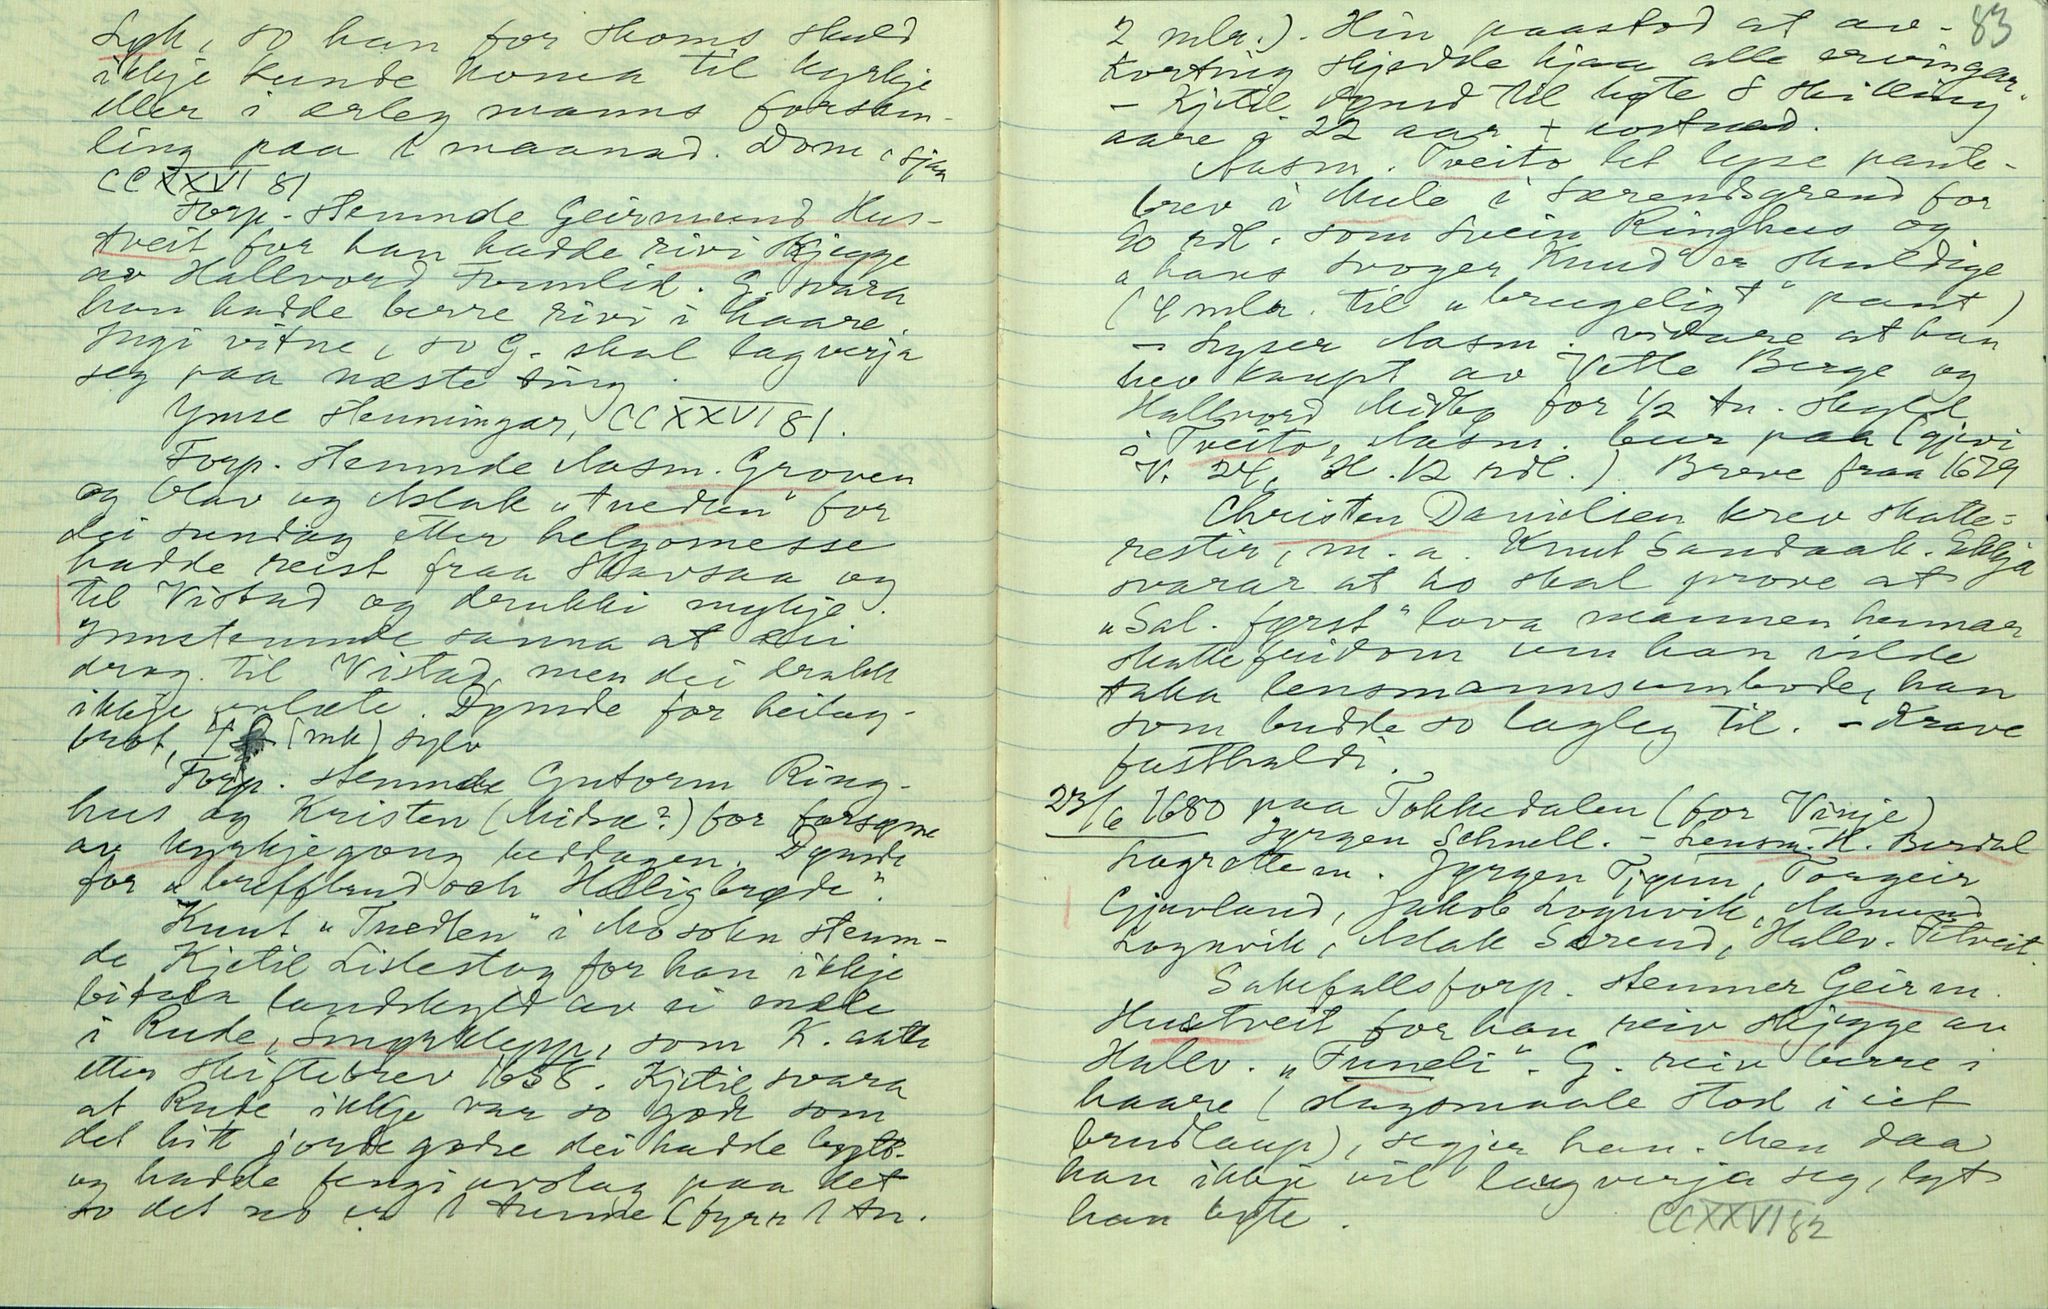 Lyk, so han for skoms skuld
ikkje kunde koma til kyrkje
eller i ærleg manns forsam-
ling paa 1 maanad. Dom, sjaa
CCXXVI 81
Forp. stemnde Geirmund Hus-
tveit for han hadde rivi skjegge
av Hallvord Trunlid. G. svara
han hadde berre rivi i haare.
Ingi vitne, so G. skal lagverja
seg paa næste ting.
Ymse stemningar, CCXXVI 81.
Forp. stemnde Aasm. Groven
og Olav og Aslak "tvedten" for
dei sundag etter helgomesse
hadde reist fraa Skavsaa og
til Vistad og drukki mykje.
Innstemnde sanna at dei
drog til Vistad, men dei drakk
ikkje urlæte. Dømde for heilag-
brot, 4 (mk) sylv
Forp. stemnde Gutorm Ring-
hus og Kristen (Midsæ?) for forsøme
av kyrkjegong beddagen. Dømde
for "breffbrud och Helligbrøde".
Knut "Tvedten" i Mo sokn stemn-
de Kjetil Listestog for han ikkje
bitala landskyld av ei mele
i Rude, smørklepp, som K. aatte
etter skiftebrev 1658. Kjetil svara
at Rude ikkje var so god som
det hitt jordegodse dei hadde bytt
og hadde fengi avslag paa det
so det no er 1 tunne (fyrr 1 tn.
83
2 mlr.). Hin paastod at av-
korting skjedde hjaa alle ervingar.
- Kjetil dømd til bøte 8 skilling
aare i 22 aar + kostnad.
Aasm. Tveito let lysa pante-
brev i Mule i Særensgrend for
90 rdl. som Svein Ringhus og
"hans svoger Knud" er skuldige
(4 mlr. til "brugeligt" pant)
- Lyser Aasm. vidare at han
hev kaupt av Vetle Berge og
Hallvord Midbø for 1/2 tn. skyld
i Tveito, Aasm. bur paa (gjevi
V. 24, H. 12 rdl.) Breve fraa 1679
Christen Danielsen krev skatte-
restir, m. a. Knut Sandaak. Ekkja
svarar at ho skal prove at
"Sal. fyrst" lova mannen hennar
skattefridom um han vilde
taka lensmannsumbode, han
som budde so lagleg til. - Krave
fasthaldi.
23/6 1680 paa Tokkedalen (for Vinje)
Jyrgen Schnell. - Lensm. K. Berdal
Lagrettem. Jyrgen Tjønn, Torgeir
Gjuvland, Jakob Lognvik, Aamund
Lognvik, Aslak Særend, Hallv. Tetveit.
Sakefallsforp. stemner Geirm.
Hustveit for han reiv skjegge av
Hallv. "Trundi". G. reiv berre i
haare (slagsmaale stod i eit
brudlaup), segjer han. Men daa
han ikkje vil lagverja seg, lyt
han bøte.
CCXXVI 82